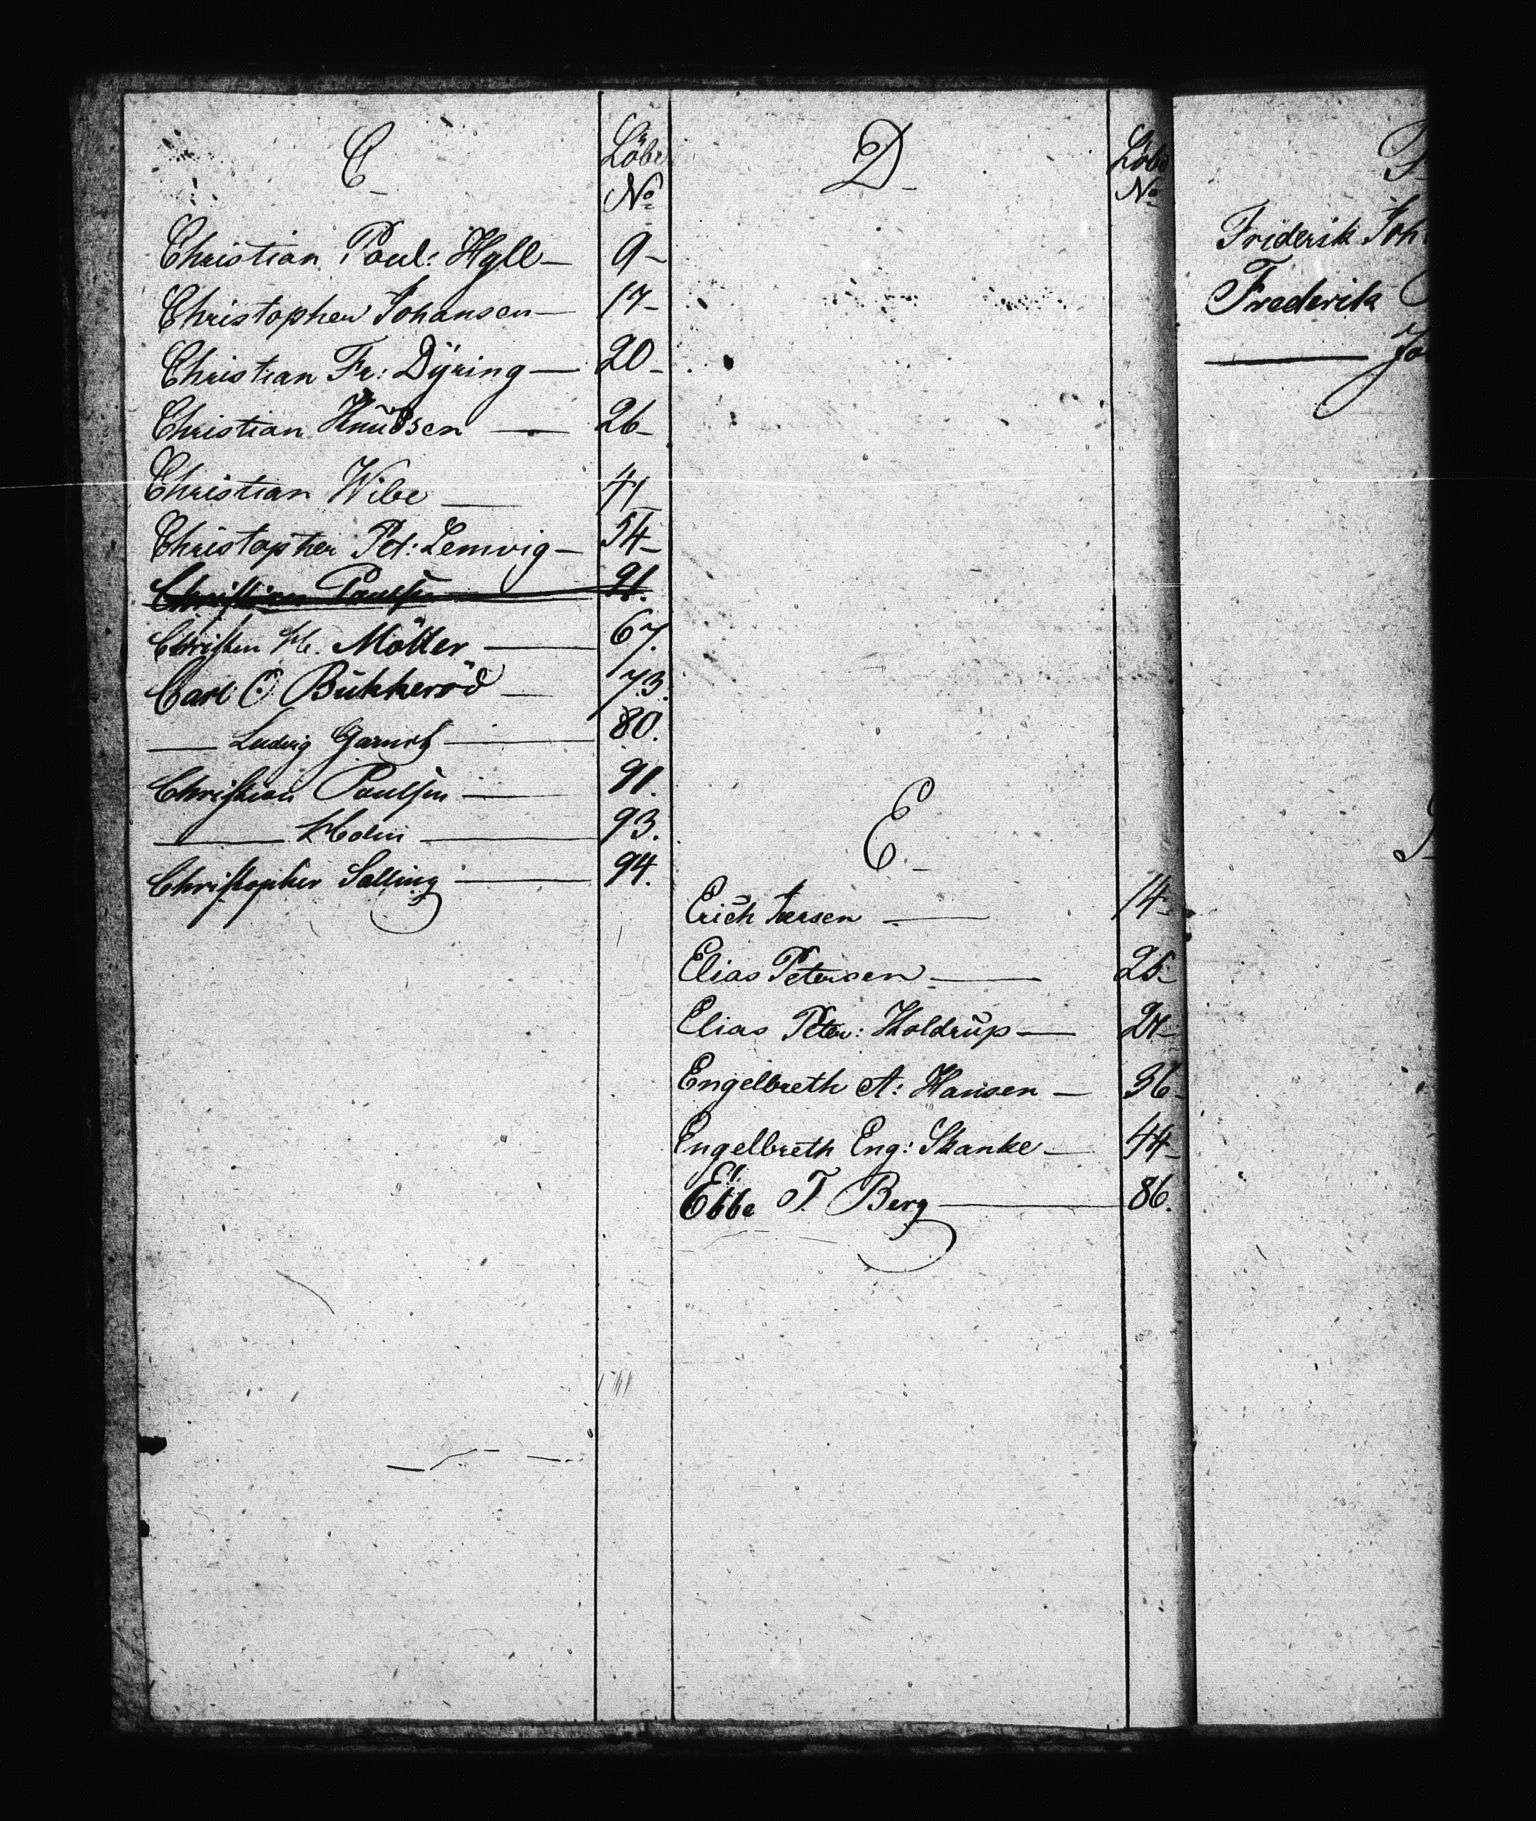 C
Löbe
No
Christian Poul: Hyll — 9
Christopher Johansen — 17
Christian Fr: Dÿring — 20
Christian Knudsen — 26
Christian Wibe — 41
Christopher Pet: Lemvig — 54
Christian Paulsen — 91.
Christen M. Möller — 67.
Carl C Bukkeröd — 73.
— Ludvig Garnæs — 80.
Christian Paulsen — 91.
— Holm — 93.
Christopher Salling — 94.
D
Löbe
No
E
Erich Iversen — 14
Elias Petersen — 25
Elias Peter: Holdrup — 27
Engelbreth A: Hansen — 36
Engelbreth Eng: Skanke — 44
Ebbe T. Berg — 86.
F
Friderik Joh
Frederik
— Jo